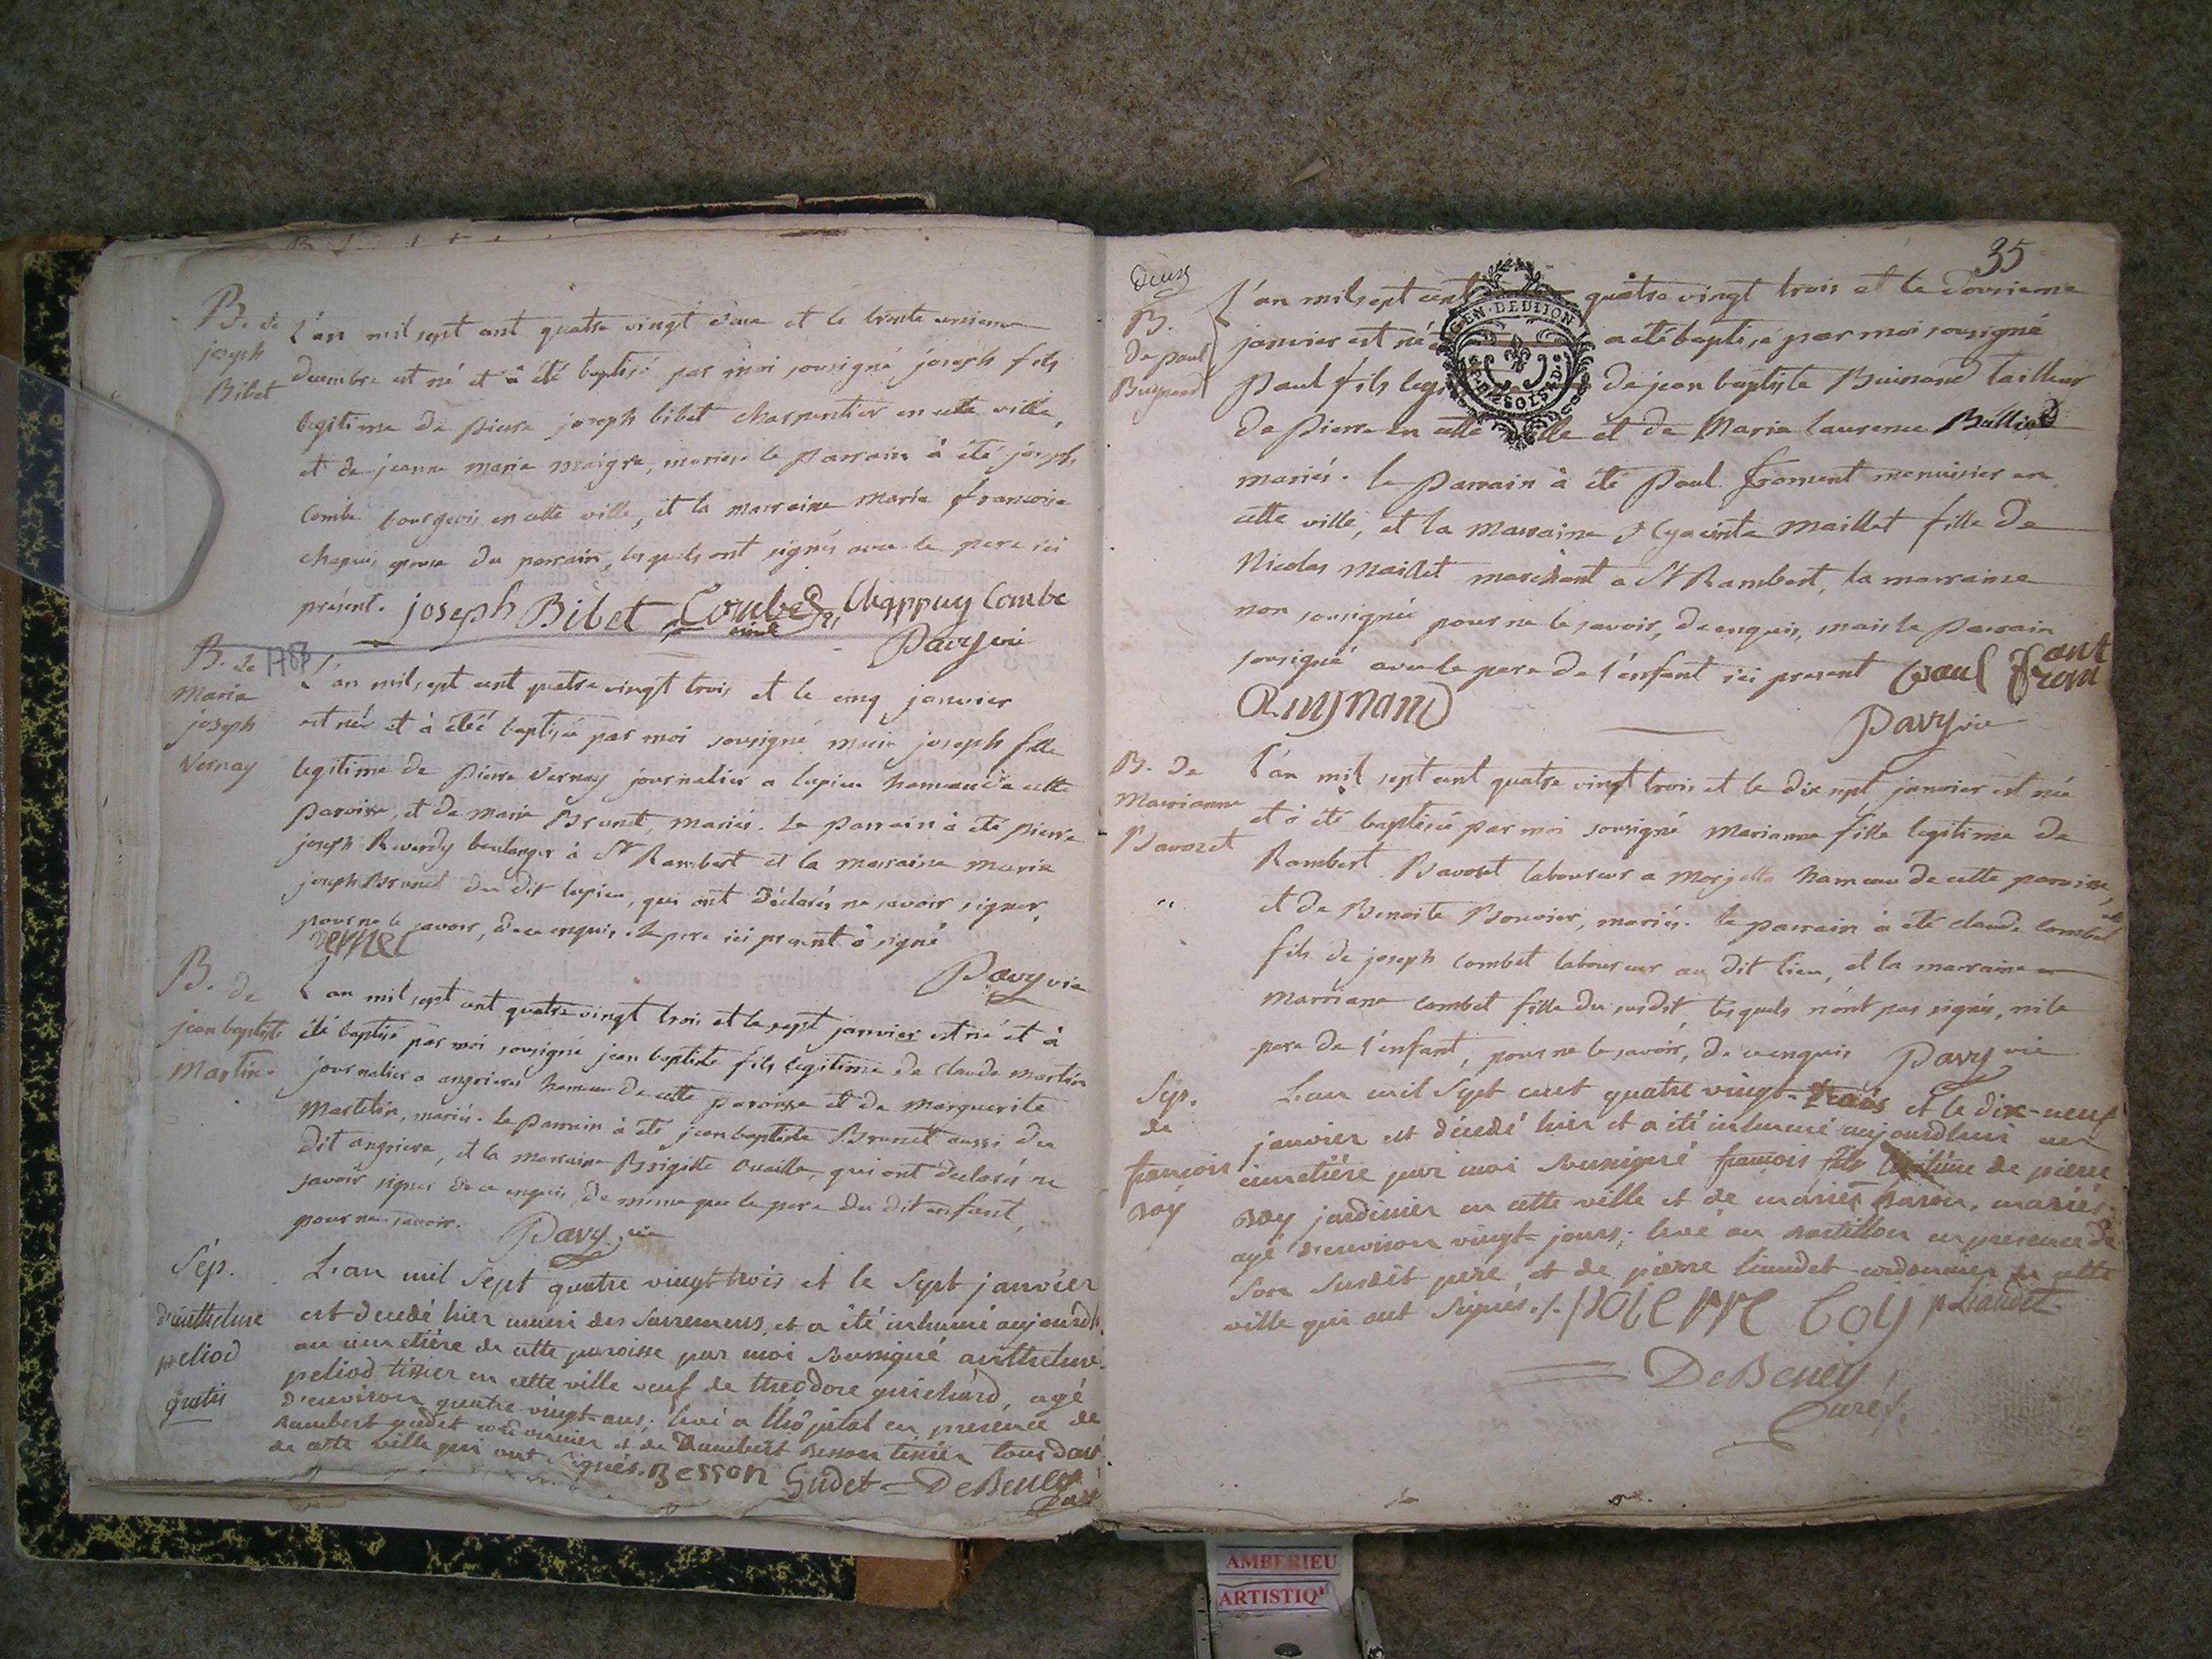 B. de
joseph
Bibet
L'an mil sept cent quatre vingt deux et le trente unieme
decembre est né et à été baptisé par moi sousigné joseph fils
legitime de pierre joseph bibet charpentier en cette ville,
et de jeanne marie maigre, mariés. le parrain à été joseph
Combe bourgeois en cette ville, et la marraine Marie francoise
chapuis epouse du parrain, lesquels ont signés avec le pere ici
présent. joseph Bibet Combe Chappuy Combe
Pavy vic
1783
B. de
Marie
joseph
Vernay
L'an mil sept cent quatre vingt trois et le cinq janvier
est née et à étéé baptisée par moi sousigné marie joseph fille
legitime de pierre Vernay journalier a lupieu hameau de cette
paroisse, et de Marie Brunet, mariés. Le parrain à été pierre
joseph Reverdy boulanger à St Rambert et la marraine marie
joseph Brunet du dit lupieu, qui ont déclarés ne savoir signer,
pour ne le savoir, de ce enquis le pere ici present à signé
vernei
Pavy vic
B. de
jean baptiste
Martin.
L'an mil sept cent quatre vingt trois et le sept janvier est né et à
été baptisé par moi sousigné jean baptiste fils legitime de claude martin
journalier a angrieres hameau de cette paroisse et de marguerite
Martelin, mariés. le parrain à été jean baptiste Brunet aussi du
dit angriere, et la marraine Brigitte ouaille, qui ont declarés ne
savoir signer de ce enquis, de meme que le pere du dit enfant,
pour ne savoir. Pavy vic
Sép.
d'anthelme
peliod
gratis
L'an mil sept quatre vingt trois et le sept janvier
est decedé hier muni des sacremens, et a été inhumé aujourd'h.
au cimetiére de cette paroisse par moi soussigné anthelme
peliod tissier en cette ville veuf de theodore guichard, agé
d'environ quatre vingt-ans; levé a l'hôpital en presence de
Rambert gudet cordonnier et de Rambert Besson tissier tous deux
de cette ville qui ont signés. Besson Gudet = DeBeney
Curé
35
Deux
B.
de paul
Buynand
L'an mil sept cent quatre vingt trois et le douzieme
janvier est né a été baptisé par moi sousigné
Paul fils leg de jean baptiste Buisnand tailleur
de Pierre en cette ville et de Marie Laurence Bulliod
mariés. le Parrain à été Paul froment menuisier en
cette ville, et la Marraine Hyacinte Maillet fille de
Nicolas Maillet marchant a St Rambert, la marraine
non sousignée pour ne le savoir, de enquis, mais le parrain
sousigné avec le pere de l'enfant ici present paul From
ant
Buynand
Pavy vic
B. de
Marianne
Bavozet
L'an mil sept cent quatre vingt trois et le dix sept janvier est née
et à été baptisée par moi sousigné Marianne fille legitime de
Rambert Bavoset laboureur a Morgelas hameau de cette paroisse,
et de Benoite Bouvier, mariés. le parrain à été claude combet
fils de joseph combet laboureur au dit lieu, et la marraine
Marriane combet fille du susdit, lesquels n'ont pas signés, ni le
pere de l'enfant, pour ne le savoir, de ce enquis Pavy vic
Sép.
de
francois
Roy
L'an mil sept cent quatre vingt-trois et le dix-neuf
janvier est décedé hier et a été inhumé aujourdhui au
cimetiére par moi soussigné francois fils légitime de pierre
Roy jardinier en cette ville et de mariet Baron, mariés.
agé d'environ vingt-jours; levé au Rastillon en presence de
son susdit pere, et de pierre liaudet cordonnier en cette
ville qui ont signés./. pierre Roy p Liaudet
DeBeney
Curé/.
AMBERIEU
ARTISTIQ